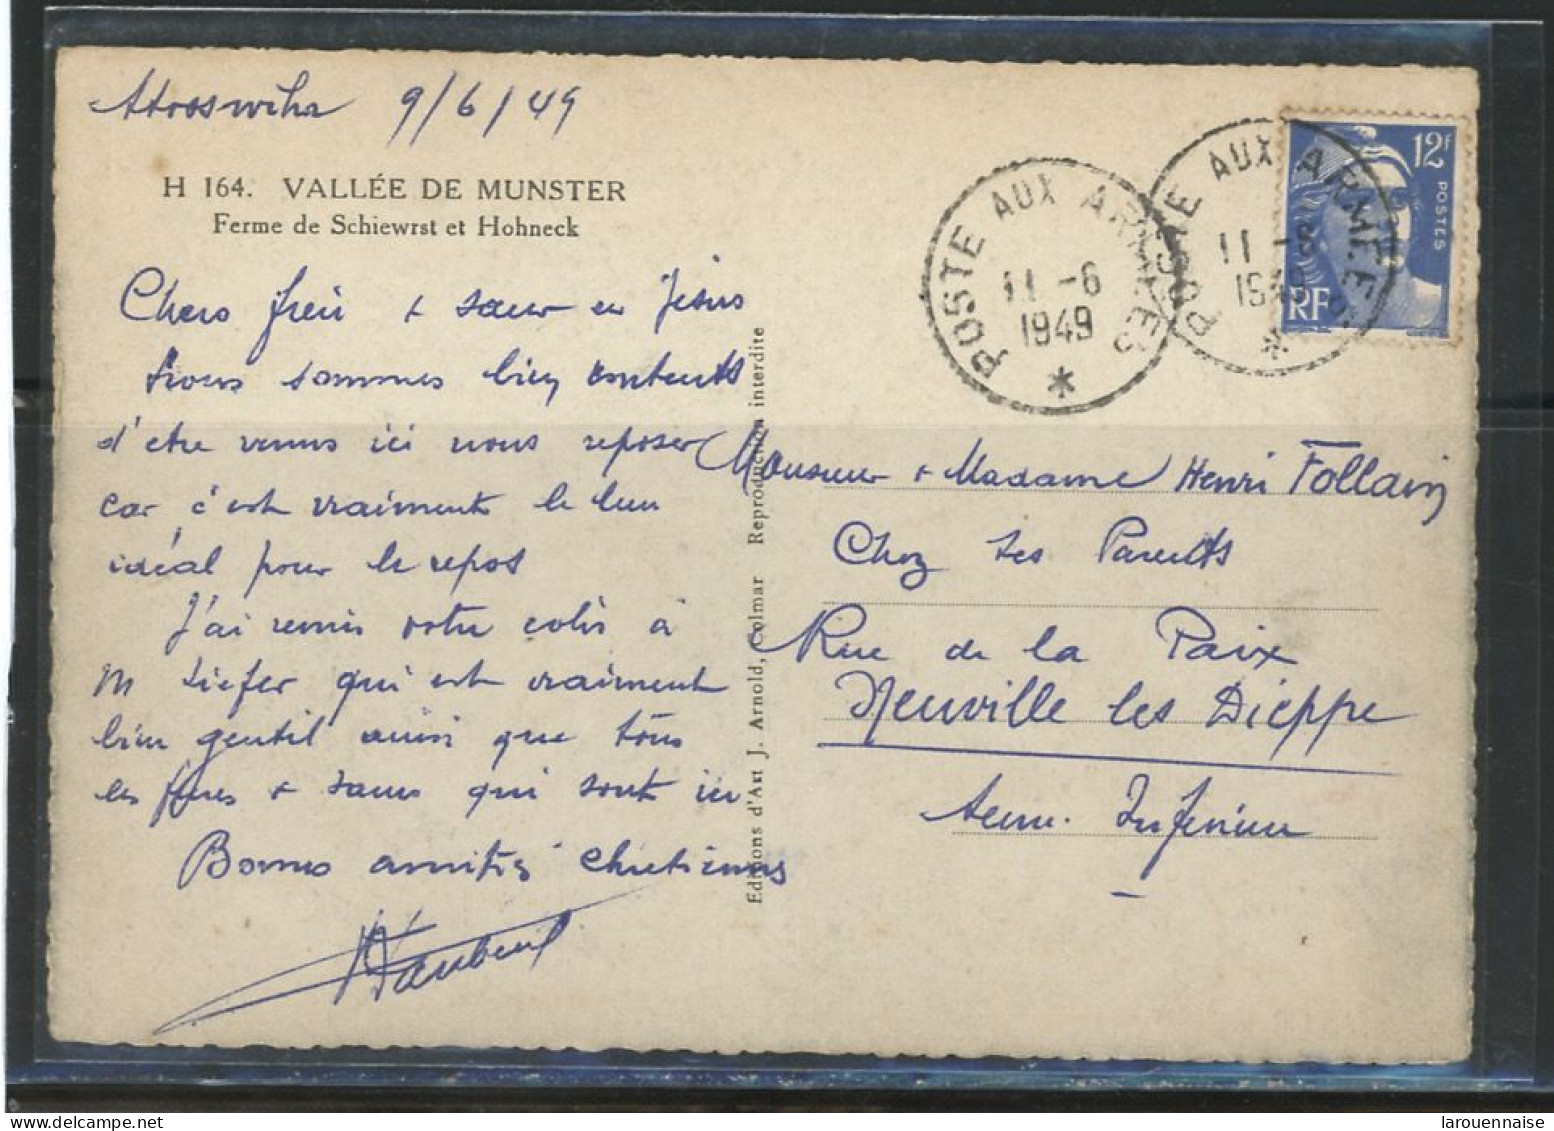 9/6/49
H 164. VALLÉE DE MUNSTER
Ferme de Schiewrst et Hohneck
Chers frèr + sœur en Jésus
nous sommes bien contents
d'etre venus ici nous reposer
car c'est vraiment le lieu
idéal pour le repos
J'ai remis votre colis à
M Liefer qui est vraiment
bien gentil ainsi que tous
les frères + sœurs qui sont ici
Bonnes amitiés chretiennes
Editions d'Art J. Arnold, Colmar Reproduction interdite
POSTE AUX ARMÉES
11 -6
1949
*
POSTE AUX ARMÉES
11 -6
1949
*
12f
POSTES
RF
Monsieur + Madame Henri Follain
Chez ses Parents
Rue de la Paix
Neuville les Dieppe
Seine Inférieure
larouennaise